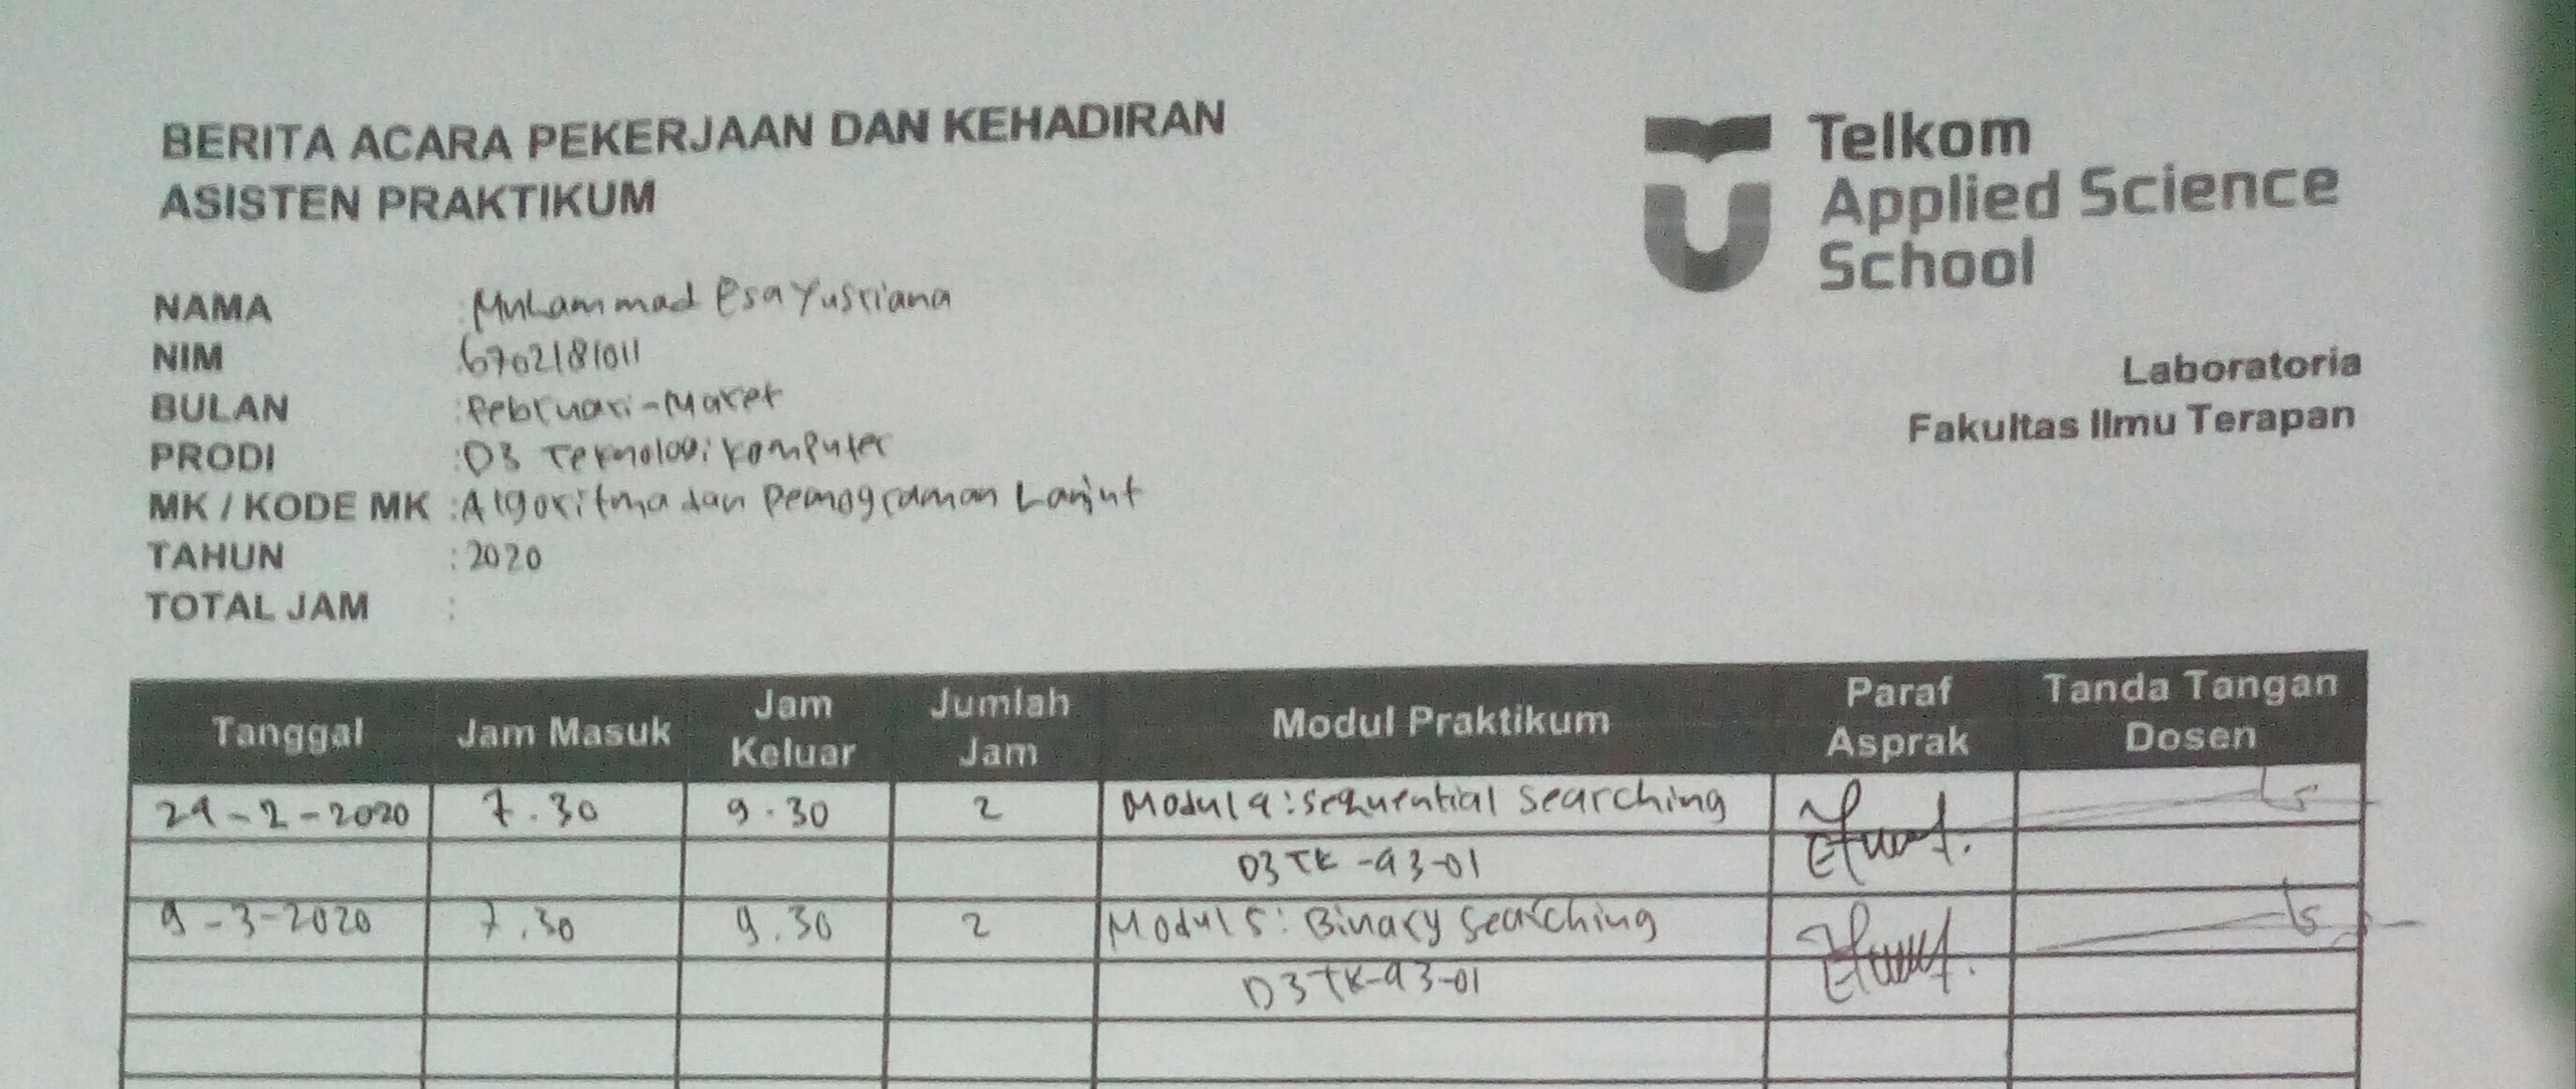 BERITA ACARA PEKERJAAN DAN KEHADIRAN
ASISTEN PRAKTIKUM
Telkom
Applied Science
School
Laboratoria
Fakultas Ilmu Terapan
NAMA : Muhammad Esa Yusriana
NIM : 6702181011
BULAN : Februari-Maret
PRODI : D3 Teknologi komputer
MK / KODE MK : Algoritma dan Pemograman Lanjut
TAHUN : 2020
TOTAL JAM :
Tanggal Jam Masuk Jam Keluar Jumlah Jam Modul Praktikum Paraf Asprak Tanda Tangan Dosen
24-2-2020 7.30 9.30 2 Modul 4: Sequential Searching
D3TK-43-01
9-3-2020 7.30 9.30 2 Modul 5: Binary Searching
D3TK-43-01